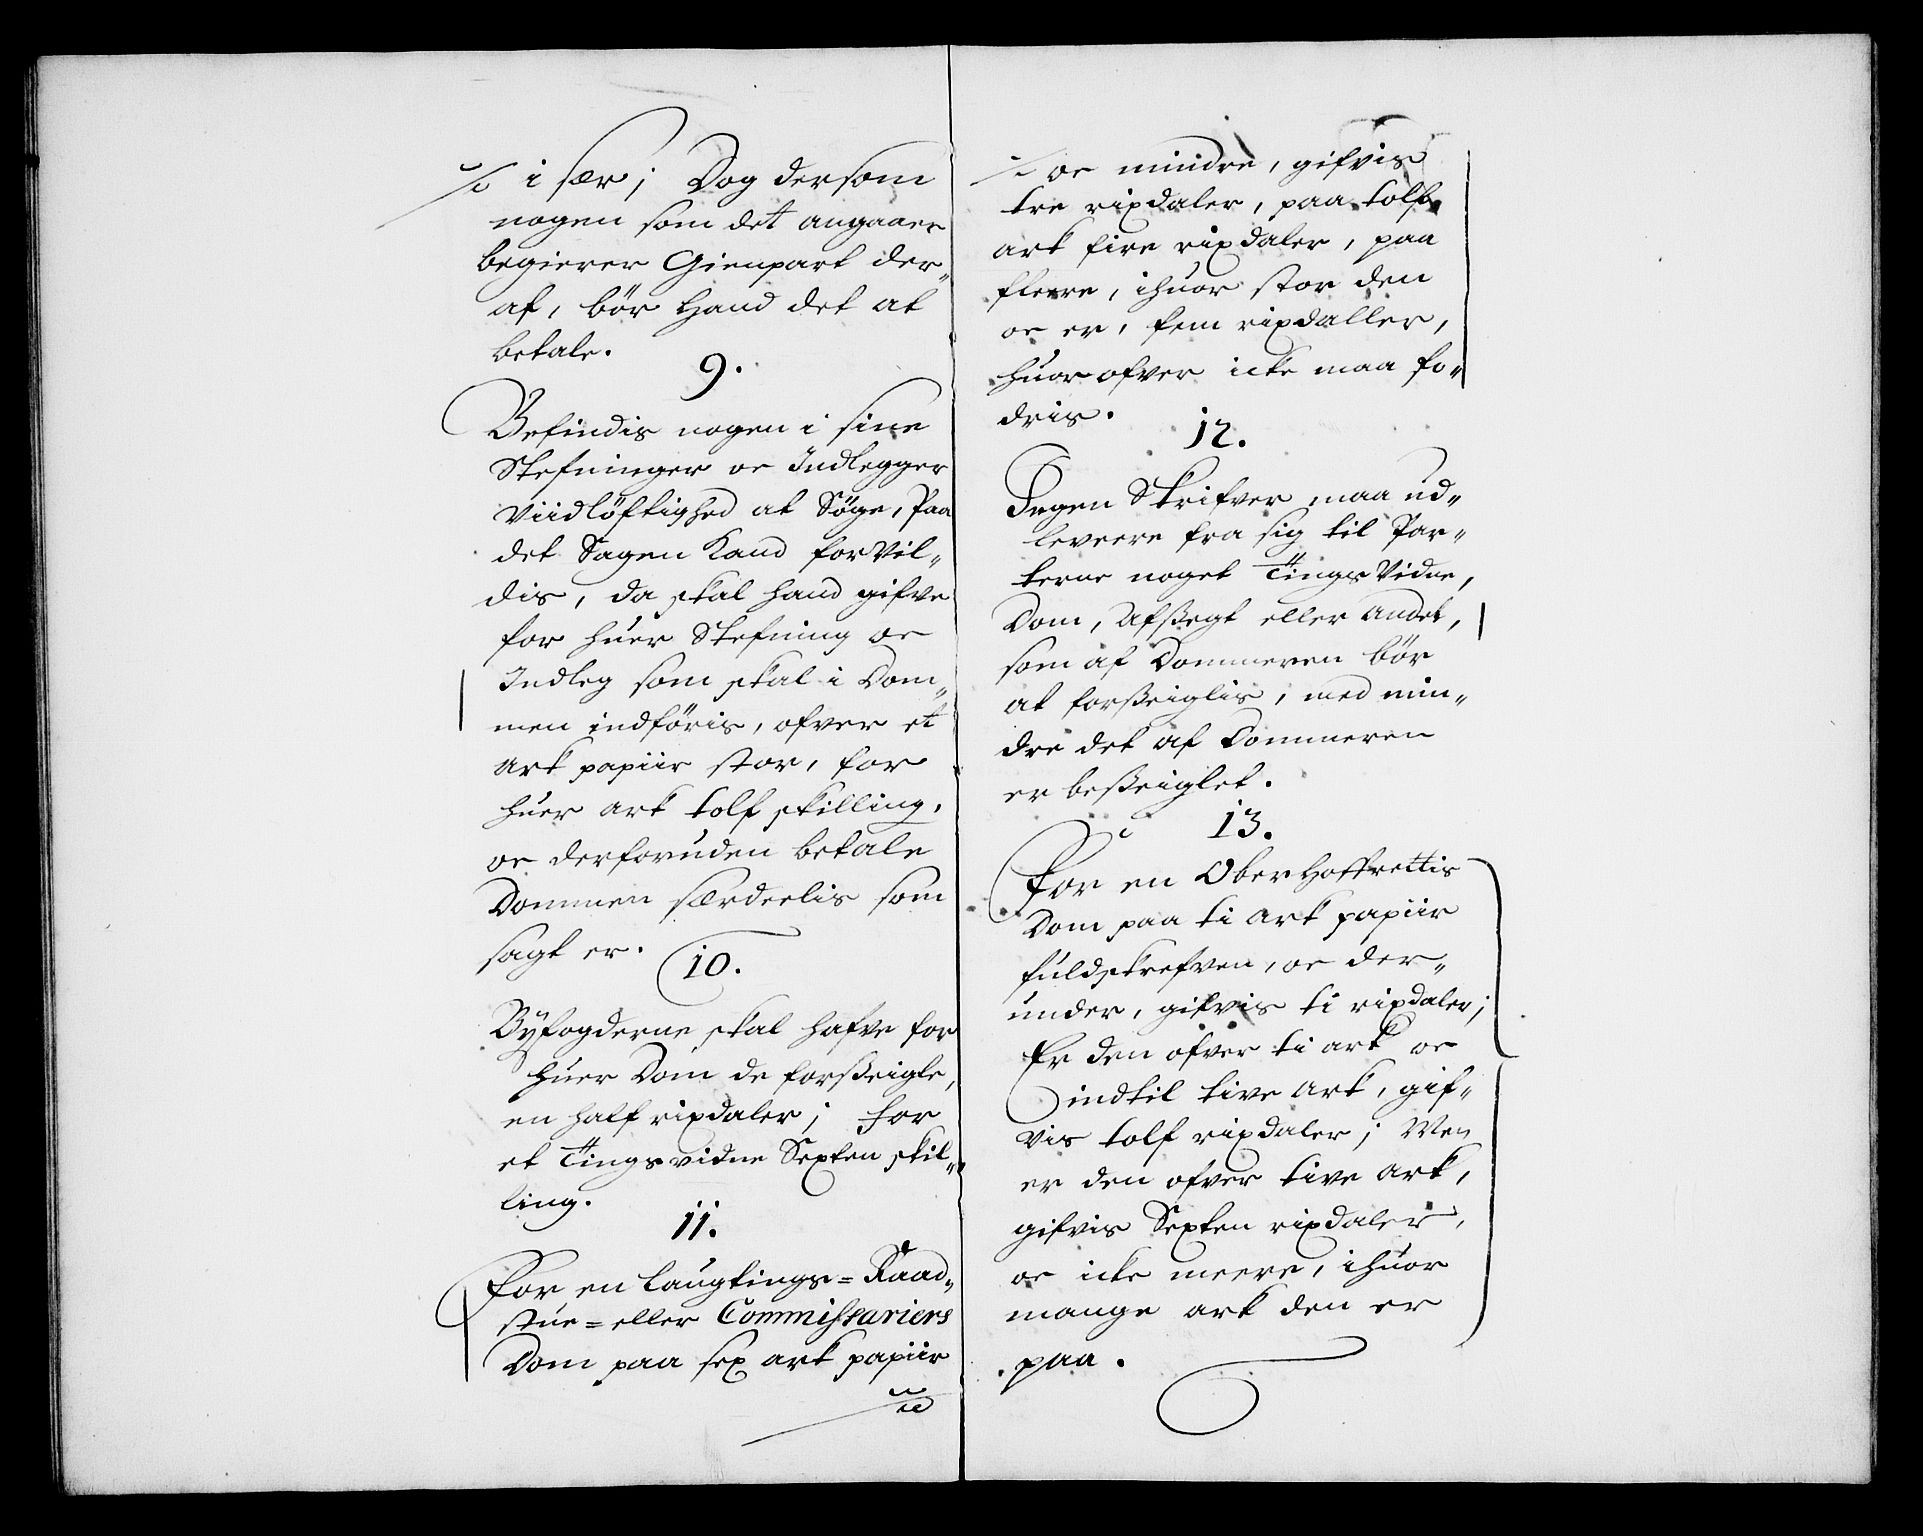 i sær; Dog dersom
nogen som det angaaer
begierer Gienpart der„
af, bør hand det at
betale.
9.
Befindis nogen i sine
Stefninger oc Indlegger
Viidløftighed at Søge, Paa
det Sagen kand forvil„
dis, da skal hand gifve
for huer Stefning oc
Indleg som skal i Dom„
men indføris, ofver et
Ark papiir stor, for
huer ark tolf skilling,
oc derforuden betale
Dommen særdeelis som
sagt er.
10.
Byfogderne skal hafve for
huer Dom de forsseigle,
en half rixdaler; for
et Tingsvidne Sexten skil„
ling.
11.
For en Laugtings= Raad„
stue= eller Commissariers
Dom paa sex ark papiir
oc mindre, gifvis
tre rixdaler, paa tolf
ark fire rixdaler, paa
fleere, ihuor stor den
oc er, fem rixdaller,
huorofver icke maa fo„
dris.
12.
Ingen Skrifver maa ud„
leveere fra sig til Par„
terne noget Tingsvidne,
Dom, Afssegt eller andet,
som af Dommeren bør
at forsseiglis, med min„
dre det af Dommeren
er besseiglet.
13.
For en Oberhoffrettis
Dom paa ti ark papiir
fuldskrefven, oc der„
under, gifvis ti rixdaler;
Er den ofver ti ark oc
indtil tive ark, gif„
vis tolf rixdaler; Men
er den ofver tive ark,
gifvis Sexten rixdaler,
oc icke meere, ihuor
mange ark den er
paa.